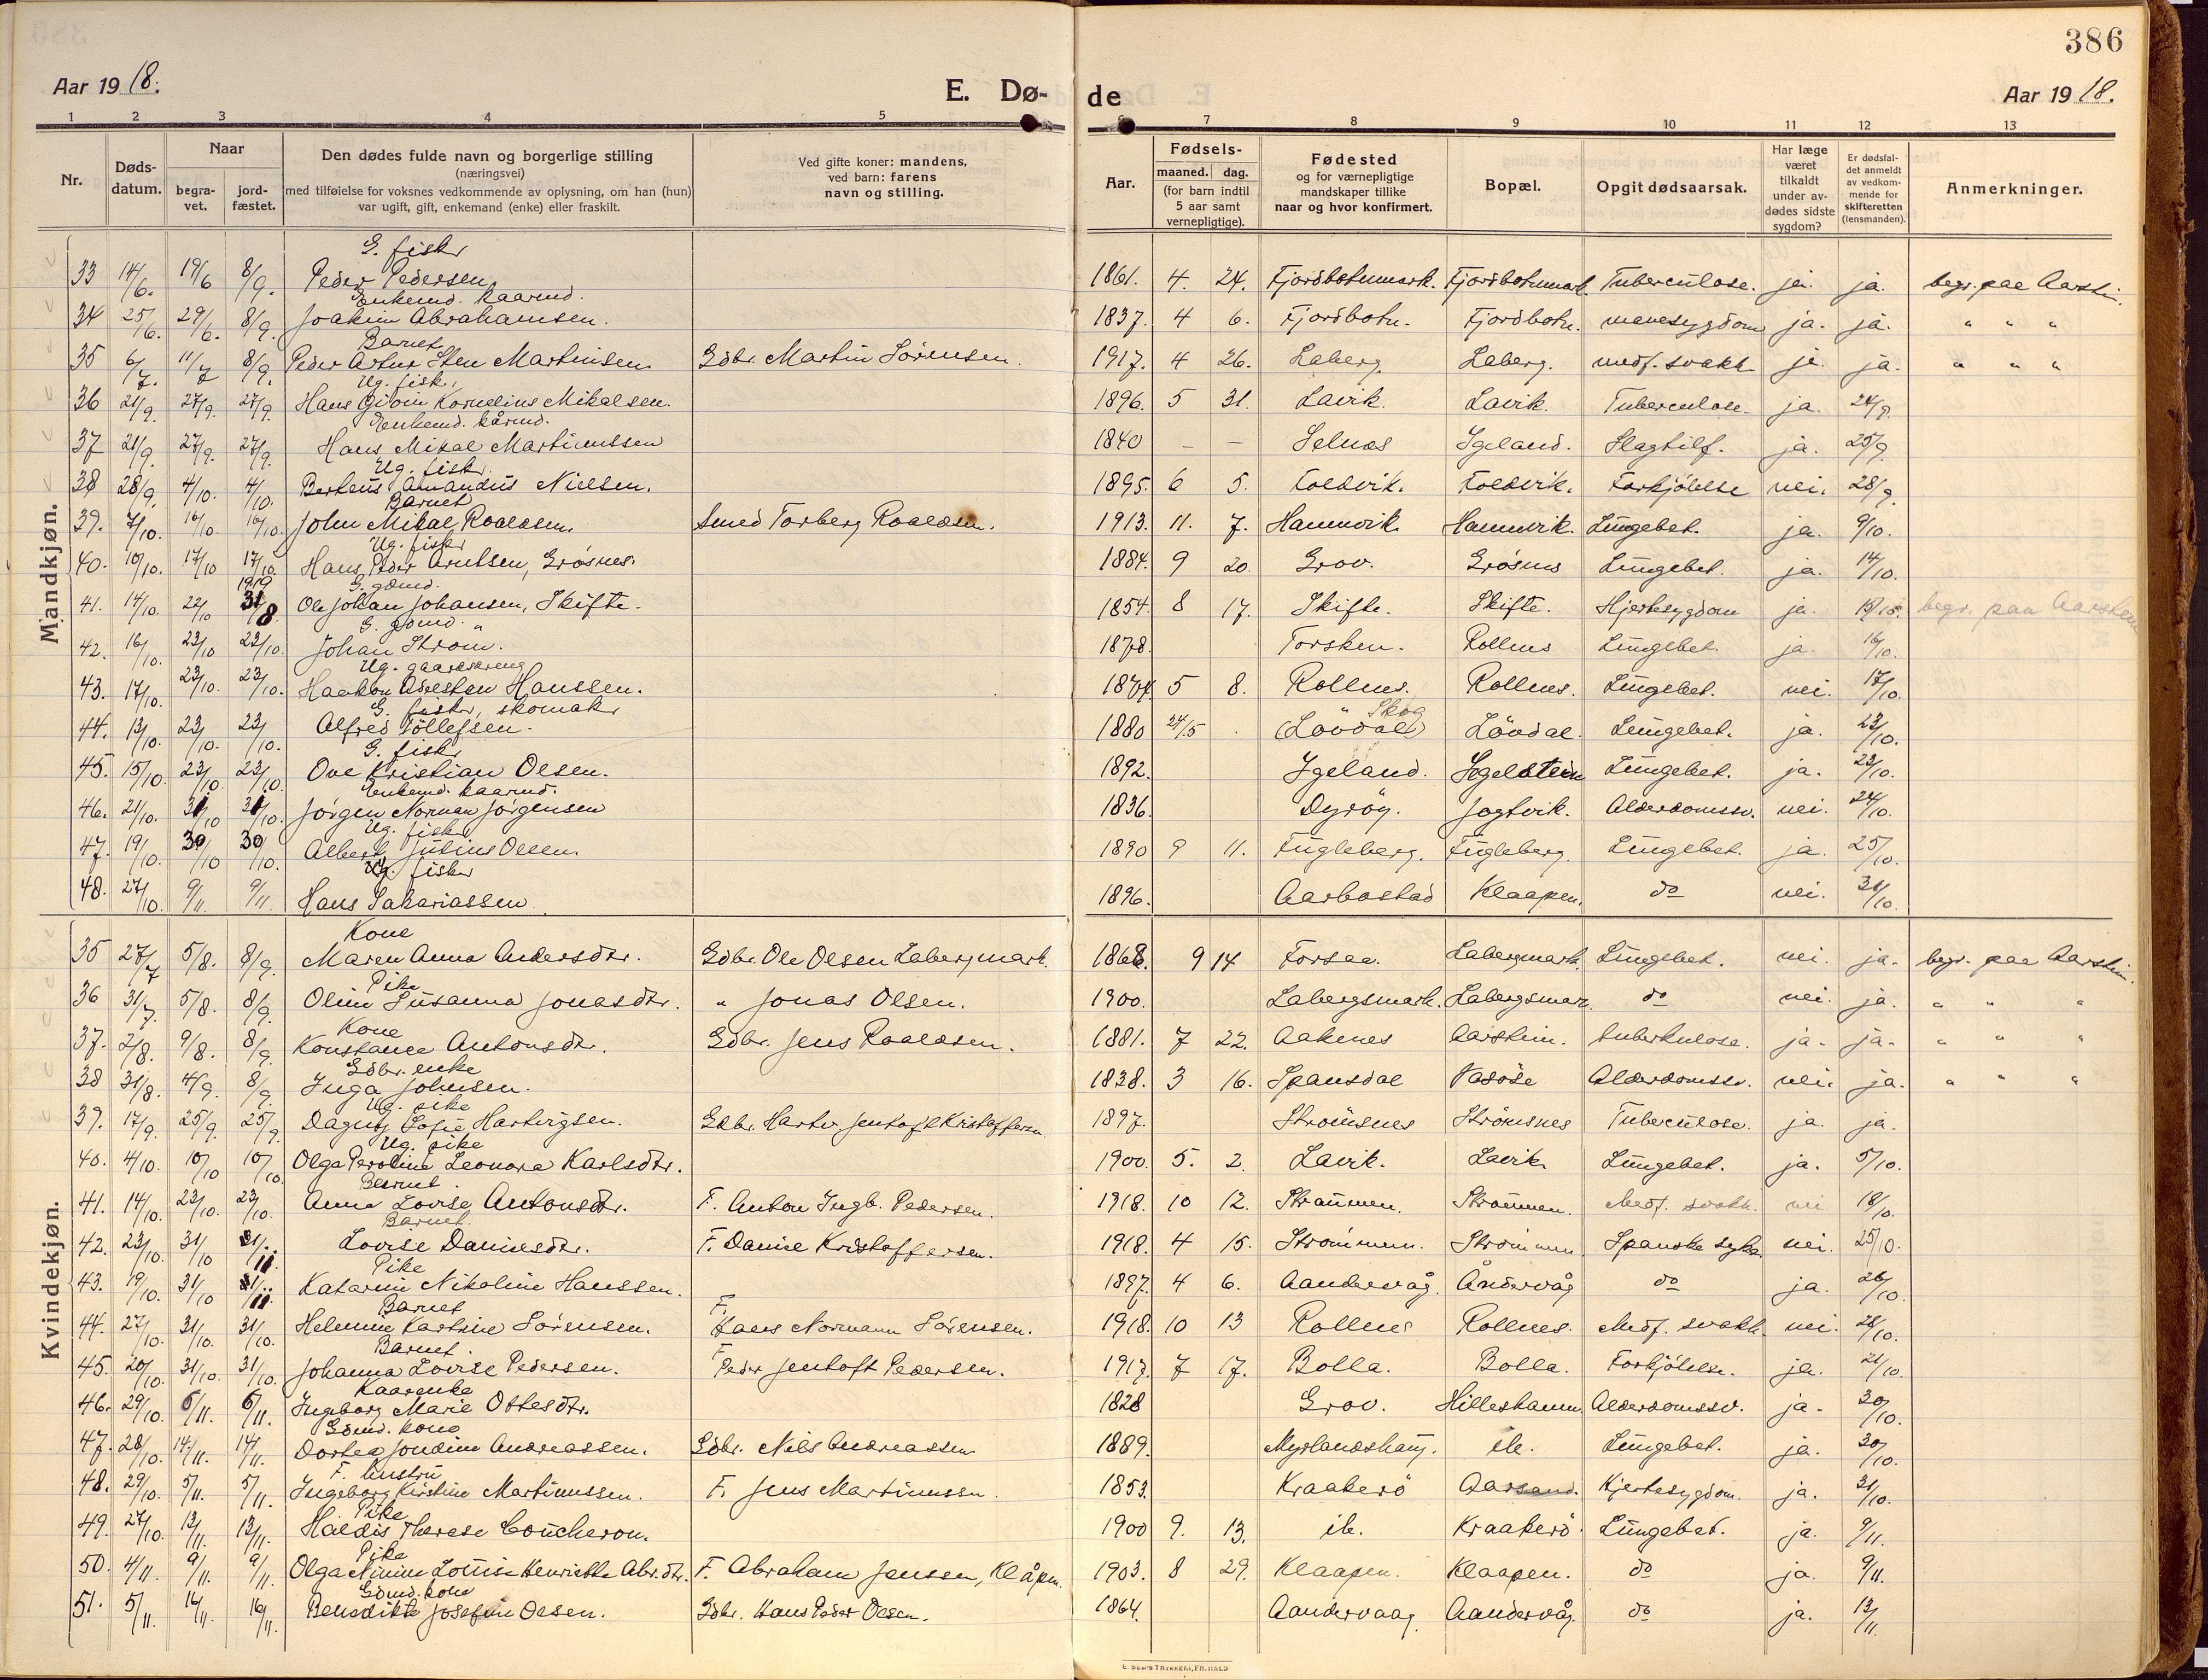 386
Aar 1918.
E. Dø-
de
Aar 1918.
1 2 3 4 5 6 7 8 9 10 11 12 13
Nr.
Døds-
datum.
Naar
begra-
vet.
jord-
fæstet.
Den dødes fulde navn og borgerlige stilling
(næringsvei)
med tilføielse for voksnes vedkommende av oplysning, om han (hun)
var ugift, gift, enkemand (enke) eller fraskilt.
Ved gifte koner: mandens,
ved barn: farens
navn og stilling.
Aar.
Fødsels-
maaned. dag.
(for barn indtil
5 aar samt
vernepligtige).
Fødested
og for værnepligtige
mandskaper tillike
naar og hvor konfirmert.
Bopæl.
Opgit dødsaarsak.
Har læge
været
tilkaldt
under av-
dødes sidste
sygdom?
Er dødsfal-
det anmeldt
av vedkom-
mende for
skifteretten
(lensmanden).
Anmerkninger.
Mandkjøn.
G. fisker
33 14/6. 19/6 8/9. Peder Pedersen 1861. 4. 24. Fjordbotnmark. Fjordbotnmark Tuberculose. ja. ja. begr. paa Aarstein.
Enkemd. kaarmd.
34 25/6. 29/6. 8/9. Joakim Abrahamsen. 1837. 4 6. Fjordbotn. Fjordbotn. mavesygdom ja. ja. " " "
Barnet
35 6/7. 11/7 8/9. Peder Artur Sten Martinsen Gdbr. Martin Sørensen. 1917. 4 26. Laberg. Laberg. medf. svakh. ja. ja. " " "
Ug. fisk.
36 21/9. 27/9. 27/9. Hans Kornelius Mikalsen. 1896. 5 31. Lavik. Lavik. Tuberculose. ja. 24/9.
Enkemd. kårmd.
37 21/9. 27/9. 27/9. Hans Mikal Martinussen 1840 – – Selnes Igeland. Slagtilf. ja. 25/9
Ug. fisker
38 28/9. 4/10. 4/10. Berteus Amandus Nielsen. 1895. 6 5. Foldvik. Foldvik. Forkjölelse nei. 28/9.
Barnet
39. 7/10. 16/10. 16/10. John Mikal Roaldsen. Smed Torberg Roaldsen. 1913. 11. 7. Hamnvik. Hamnvik. Lungebet. ja. 9/10.
Ug. fisker
40. 10/10. 17/10 17/10. Hans Peder Arntsen, Grøsnes. 1884. 9 20. Grov. Grøsnes Lungebet. ja. 14/10.
1919 G. gdmd.
41. 14/10. 22/10 31/8. Ole Johan Johansen, Skifte. 1854. 8 17. Skifte. Skifte. Hjertesygdom ja. 15/10. begr. paa Aarstein
G. gdmd. "
42. 16/10. 23/10 23/10. Johan Strøm. 1878. Torsken. Rollnes Lungebet. ja. 16/10.
Ug. gaardsdreng
43. 17/10. 23/10. 23/10. Haakon Adelsten Hanssen. 1874 5 8. Rollnes. Rollnes. Lungebet. nei. 17/10.
G. fisker, skomaker Skog
44. 13/10. 23/10. 23/10. Alfred Tollefsen. 1880 24/5. (Lövdal) Lövdal. Lungebet. ja. 23/10.
G. fisker
45. 15/10. 23/10. 23/10. Ove Kristian Olsen. 1892. Igeland. Lungebet. ja. 23/10.
Enkemd. kaarmd.
46. 21/10. 31/10 31/10. Jørgen Norman Jørgensen 1836. Dyrøy. Jogtvik. Alderdomssv. nei. 24/10.
Ug. fisker
47. 19/10. 30/10 30/10. Albert Julius Olsen. 1890 9 11. Fugleberg. Fugleberg. Lungebet. ja. 25/10.
Ug. fisker
48. 27/10. 9/11. 9/11. Hans Sakariassen. 1896. Aarbostad Klaapen. do nei. 31/10.
Kvindekjøn.
Kone
35 27/7 5/8. 8/9. Maren Anna Andersdtr. Gdbr. Ole Olsen Labergmark. 1868. 9 14 Forsaa. Labergmark. Lungebet. nei. ja. begr. paa Aarstein.
Pike
36 31/7. 5/8. 8/9. Oline Susanna Jonasdtr. " Jonas Olsen. 1900. Labergsmark. Labergsmark do nei. ja. " " "
Kone
37. 2/8. 9/8. 8/9. Konstance Antonsdtr. Gdbr. Jens Roaldsen. 1881. 7 22. Aakenes Aarstein. tuberkulose. ja. ja. " " "
Gdbr. enke
38 31/8. 4/9. 8/9. Inga Johnsen. 1838. 3 16. Spansdal Alderdomssv. nei. ja. " " "
Ug. pike
39. 17/9. 25/9. 25/9. Dagny Sofie Hartvigsen. Gdbr. Hartv. Jentoft Kristoffersen 1897. Strömsnes Strömsnes Tuberculose. ja. ja.
Ug. pike
40. 4/10. 10/10 10/10. Olga Peroline Leonora Karlsdtr. 1900. 5. 2. Lavik. Lavik. Lungebet. ja. 5/10.
Barnet
41. 14/10. 23/10. 23/10. Anna Lovise Antonsdtr. F. Anton Ingb. Pedersen. 1918. 10 12. Straumen. Straumen. Medf. svakh. nei 18/10.
Barnet.
42. 23/10. 31/10 31/11. Lovise Danielsdtr. F. Daniel Kristoffersen. 1918. 4 15. Strömmen. Strömmen Spanske syke. nei. 25/10.
Pike
43. 19/10. 31/10 31/11. Katarine Nikoline Hanssen. 1897. 4 6. Aandervåg. Åndervåg do ja. 26/10.
Barnet
44. 27/10. 31/10. 31/10. Helmine Kartrine Sørensen. F. Hans Normann Sørensen. 1918. 10 13 Rollnes Rollnes. Medf. svakh. nei. 28/10.
Barnet.
45. 20/10. 31/10. 31/10. Johanna Lovise Pedersen. F. Peder Jentoft Pedersen. 1917. 7 17. Bolla. Bolla. Forkjölelse. ja. 21/10.
Kaarenke
46. 29/10. 6/11. 6/11. Ingeborg Marie Ottesdtr. 1828 Grov. Hilleshamn. Alderdomssv. ja. 30/10.
Gdmd. kone
47. 28/10. 14/11. 14/11. Dortea Jondine Andreassen. Gdbr. Nils Andreassen 1889. Myrlandshaug. ib. Lungebet. ja. 30/10.
F. hustru
48. 29/10. 5/11. 5/11. Ingeborg Kirstine Martinussen. F. Jens Martinussen 1853. Kraakerö Aarsand. Hjertesygdom. ja. 31/10.
Pike
49. 27/10. 13/11. 13/11. Haldis Therese Coucheron. 1900 9. 13. ib. Kraakerö. Lungebet. ja. 9/11.
Pike
50. 4/11. 9/11. 9/11. Olga Ninine Louise Henriette Abr.dtr. F. Abraham Jenssen, Klåpen. 1903. 8 29. Klaapen. Klaapen. do ja. 9/11.
Gdmd. kone
51. 5/11. 16/11. 16/11. Benedikte Josefine Olsen. Gdbr. Hans Peder Olsen. 1864. Aandervaag. Aandervåg. do ja. 13/11.